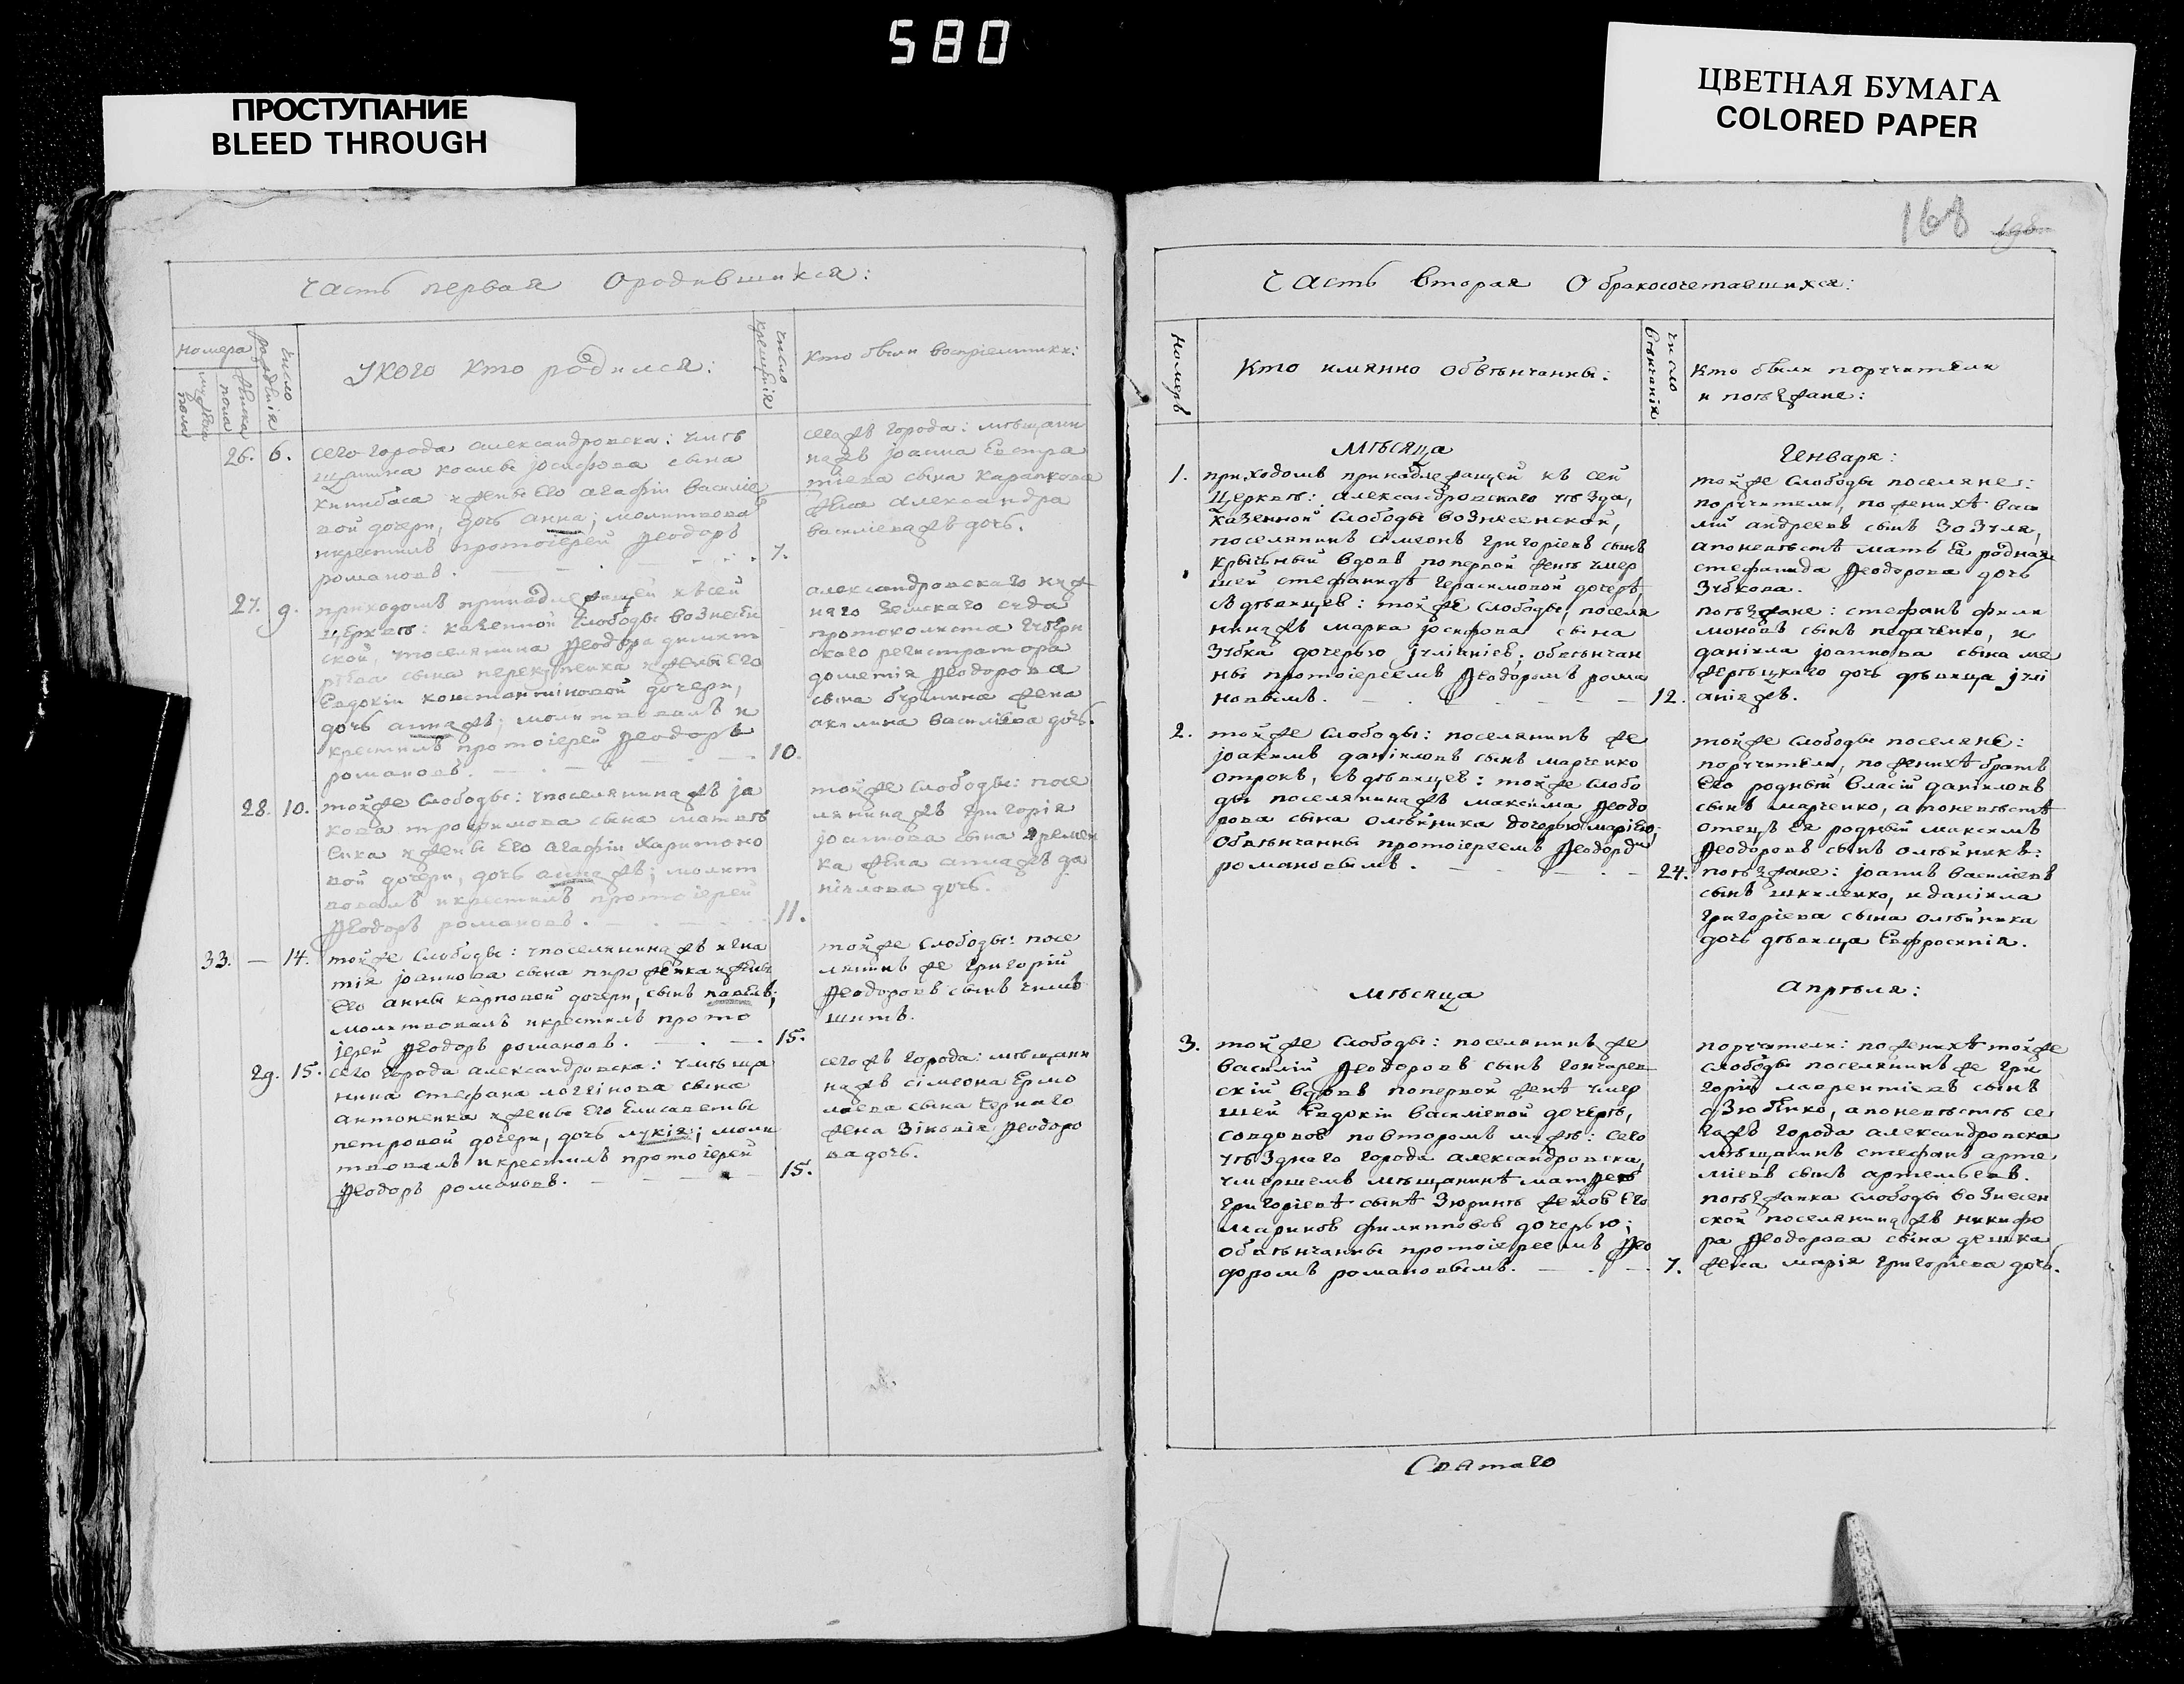 580
ПРОСТУПАНИЕ
BLEED THROUGH
ЦВЕТНАЯ БУМАГА
COLORED PAPER
Часть первая О родившихся:
номера
мужеска пола
женска пола
число рождения
У кого кто родился:
число крещения
Кто были восприемники:
26. 6. сего города александровска: у мѣ
щанина космы јосифова сына
и жены его агафіи василіе
вой дочери, дочь анна; молитвова
и крестилъ протоіерей Ѳеодоръ
романовъ. 7.
сегожъ города: мѣщани
нажъ јоанна Евстра
тіева сына
жена александра
василіеважъ дочь.
27. 9. приходомъ принадлежащей къ сей
церквѣ: казенной слободы вознесен
ской, у поселянина Ѳеодора димит
ріева сына и жены его
Евдокіи константиновой дочери,
дочь аннажъ; молитвовалъ и
крестилъ протоіерей Ѳеодоръ
романовъ. 10.
александровскаго ниж
няго земскаго суда
протоколиста губерн
скаго регистратора
дометія Ѳеодорова
сына жена
акилина василіева дочь.
28. 10. тойже слободы: у поселянинажъ ја
кова трофимова сына матвѣ
енка и жены его агафіи харитоно
вой дочери, дочь аннажъ; молит
вовалъ и крестилъ протоіерей
Ѳеодоръ романовъ. 11.
тойже слободы: посе
лянинажъ григорія
јоаннова сына яремен
ка жена аннажъ да
ніилова дочь.
33. — 14. тойже слободы: у поселянинажъ игна
тія јоаннова сына и жены
его анны карповой дочери, сынъ павелъ;
молитвовалъ и крестилъ прото
јерей Ѳеодоръ романовъ. 15.
тойже слободы: посе
лянинъ же григорій
Ѳеодоровъ сынъ
29. 15. сего города александровска: у мѣща
нина стефана логгінова сына
антоненка и жены его Елисаветы
петровой дочери, дочь лукія; моли
твовалъ и крестилъ протоіерей
Ѳеодоръ романовъ. 15.
сегожъ города: мѣщани
нажъ сімеона Ермо
лаева сына чернаго
жена зіновія Ѳеодоро
ва дочь.
168
Часть вторая О бракосочетавшихся:
номеръ
Кто имянно обвѣнчанны:
число вѣнчанія
Кто были поручители
и поѣзжане:
мѣсяца Генваря:
1. приходомъ принадлежащей къ сей
церквѣ: александровскаго уѣзда,
казенной слободы вознесенской,
поселянинъ симеонъ григоріевъ сынъ
вдовъ по первой женѣ умер
шей стефанидѣ герасимовой дочерѣ,
съ дѣвицею: тойже слободы, поселя
нинажъ марка јосифова сына
зубка дочерью јуліаніею; обвѣнчан
ны протоіереемъ Ѳеодоромъ рома
новымъ. 12.
тойже слободы поселяне:
поручители, по женихѣ васи
лій андреевъ сынъ зозуля,
а по невѣстѣ мать Ея родная
стефанида Ѳеодорова дочь
зубкова.
поѣзжане: стефанъ фили
моновъ сынъ педаченко, и
даніила јоаннова сына ме
жерѣцкаго дочь дѣвица јулі
аніяжъ.
2. тойже слободы: поселянинъ же
јоакимъ даніиловъ сынъ марченко
отрокъ, съ дѣвицею: тойже слобо
ды поселянинажъ максима Ѳеодо
рова сына олѣйника дочерью маріею;
обвѣнчанны протоіереемъ Ѳеодором
романовымъ. 24.
тойже слободы поселяне:
поручители, по женихѣ братъ
Его родный власій даніиловъ
сынъ марченко, а по невѣстѣ
отецъ Ея родный максимъ
Ѳеодоровъ сынъ олѣйникъ:
поѣзжане: јоаннъ василіевъ
сынъ шкиленко, и даніила
григоріева сына олѣйника
дочь дѣвица Евфросинія.
мѣсяца апрѣля:
3. тойже слободы: поселянинъ же
василій Ѳеодоровъ сынъ гончарев
скій вдовъ по первой женѣ умер
шей Евдокіи василіевой дочерѣ,
со вдовою по второмъ мужѣ: сего
уѣзднаго города александровска,
умершемъ мѣщанинѣ матѳеѣ
григоріевѣ сынѣ зюринѣ женою его
мариною филипповою дочерью;
обвѣнчанны протоіереемъ Ѳео
доромъ романовымъ. 7.
поручители: по женихѣ тойже
слободы поселянинъ же гри
горій лаврентіевъ сынъ
дзюбенко, а по невѣстѣ се
гожъ города александровска
мѣщанинъ стефанъ арте
міевъ сынъ артемьевъ.
поѣзжанка слободы вознесен
ской поселянинажъ никифо
ра Ѳеодорова сына дешка
жена марія григоріева дочь.
Святаго